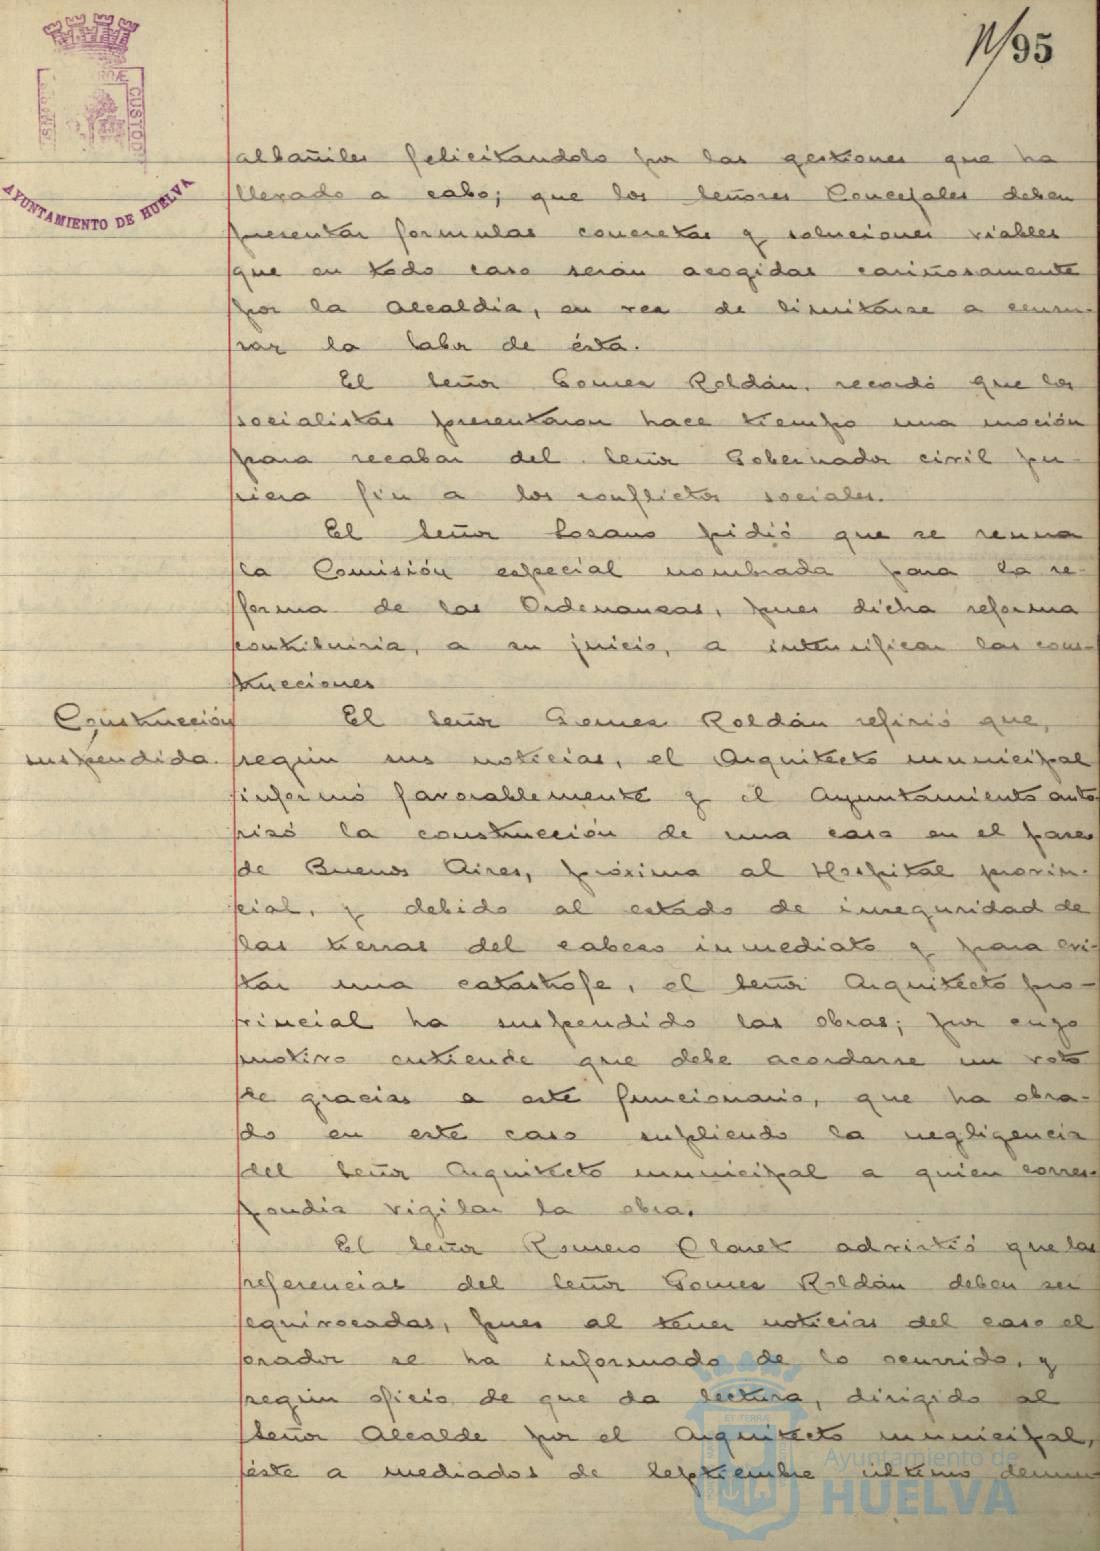 95
CUSTOD
AYUNTAMIENTO DE HUELVA
albañiles felicitandolo por las gestiones que ha
llevado a cabo; que los Señores Concejales deben
presentar formulas concretas y soluciones viables
que en todo caso serán acogidas cariñosamente
por la Alcaldia, en vez de limitarse a censu-
rar la labor de ésta.
El Señor Gomez Roldán recordó que los
socialistas presentaron hace tiempo una moción
para recabar del Señor Gobernador civil pu-
siera fin a los conflictos sociales.
El Señor Lozano pidió que se reuna
la Comisión especial nombrada para la re-
forma de las Ordenanzas, pues dicha reforma
contribuiria, a su juicio, a intensificar las cons-
trucciones
Construcción
suspendida.
El Señor Gomez Roldán refirió que,
según sus noticias, el Arquitecto municipal
informó favorablemente y el Ayuntamiento auto
rizó la construcción de una casa en el paseo
de Buenos Aires, próxima al Hospital provin-
cial, y debido al estado de inseguridad de
las tierras del cabezo inmediato y para evi-
tar una catastrofe, el Señor Arquitecto pro-
vincial ha suspendido las obras; por cuyo
motivo entiende que debe acordarse un voto
de gracias a este funcionario, que ha obra-
do en este caso supliendo la negligencia
del Señor Arquitecto municipal a quien corres-
pondia vigilar la obra.
El Señor Romero Claret advirtió que las
referencias del Señor Gomez Roldán deben ser
equivocadas, pues al tener noticias del caso el
orador se ha informado de lo ocurrido, y
según oficio de que da lectura, dirigido al
Señor Alcalde por el Arquitecto municipal,
éste a mediados de Septiembre último denun
Ayuntamiento de
HUELVA